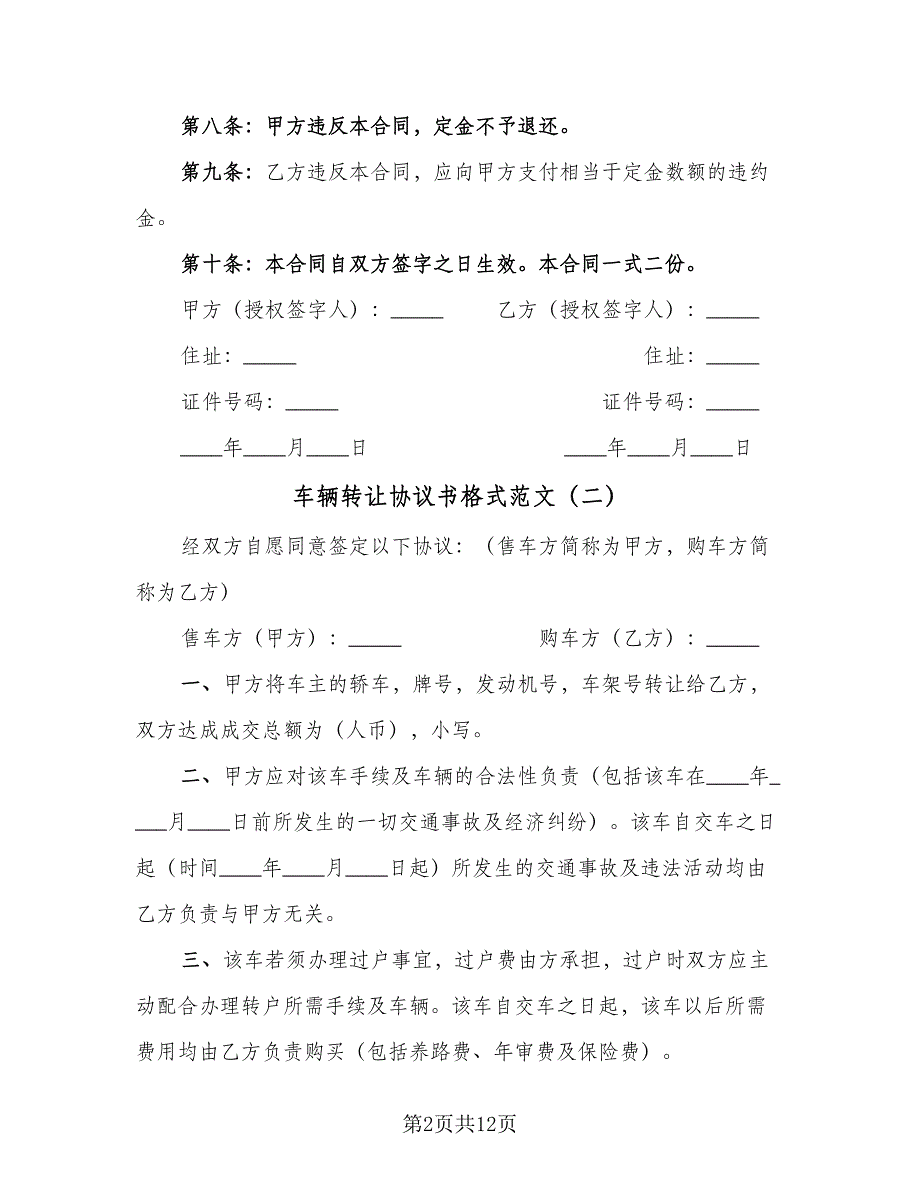 第八条：甲方违反本合同，定金不予退还。
第九条：乙方违反本合同，应向甲方支付相当于定金数额的违约
金。
第十条：本合同自双方签字之日生效。本合同一式二份。
甲方（授权签字人）：_____ 乙方（授权签字人）：_____
住址：_____ 住址：_____
证件号码：_____ 证件号码：_____
____年____月____日 ____年____月____日
车辆转让协议书格式范文（二）
经双方自愿同意签定以下协议：（售车方简称为甲方，购车方简
称为乙方）
售车方（甲方）：_____ 购车方（乙方）：_____
一、甲方将车主的轿车，牌号，发动机号，车架号转让给乙方，
双方达成成交总额为（人币），小写。
二、甲方应对该车手续及车辆的合法性负责（包括该车在____年_
___月____日前所发生的一切交通事故及经济纠纷）。该车自交车之日
起（时间____年____月____日起）所发生的交通事故及违法活动均由
乙方负责与甲方无关。
三、该车若须办理过户事宜，过户费由方承担，过户时双方应主
动配合办理转户所需手续及车辆。该车自交车之日起，该车以后所需
费用均由乙方负责购买（包括养路费、年审费及保险费）。
第2页共12页